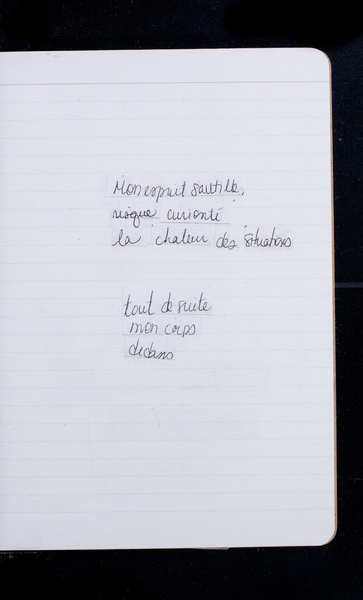 Mon esprit sautille,
risque curiosité
la chaleur des situations
tout de suite
mon corps
dedans